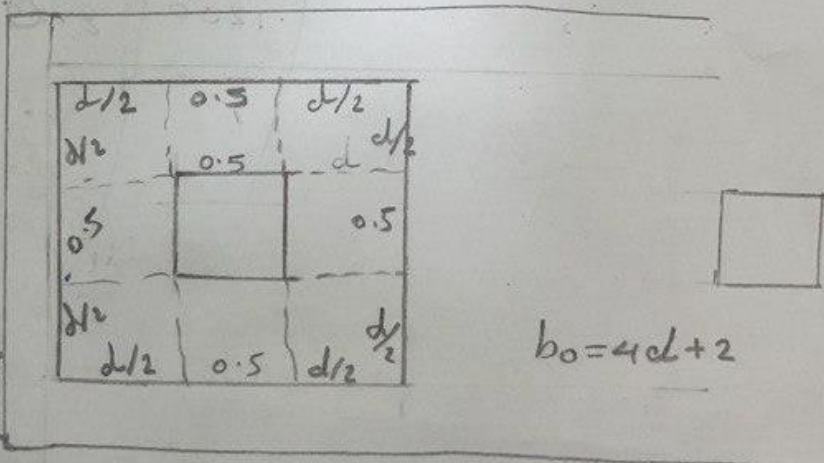 d/2 0.5 d/2
d/2 d/2
0.5 d
0.5 0.5
d/2 d/2
d/2 0.5 d/2
b0=4d+2